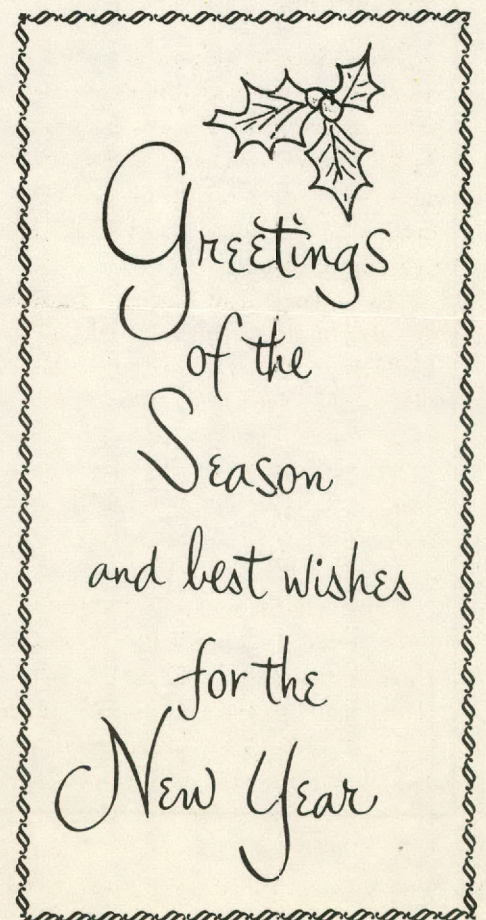 Greetings
of the
Season
and best wishes
for the
New Year